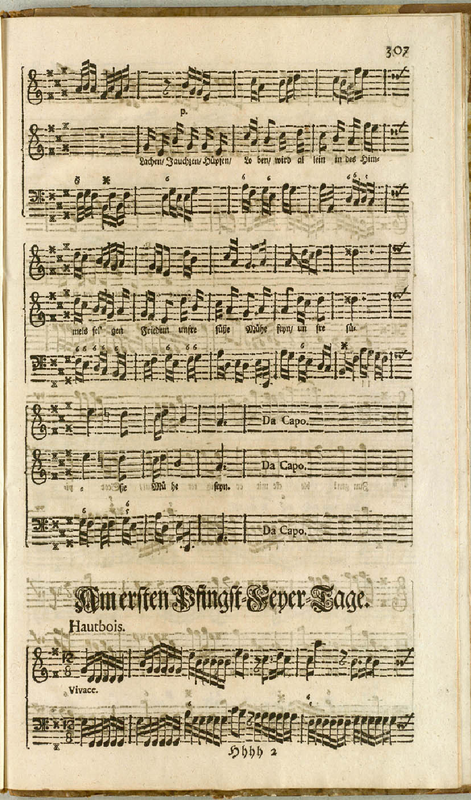 307
p.
Lachen/ Jauchzen/ Hüpfen/ Lo ben/ wird al lein in des Him-
mels sel' gen Frieden unsre süsse Mühe seyn/ un sre sü-
Da Capo.
sse Mü he seyn.
Da Capo.
Da Capo.
Am ersten Pfingst-Feyer-Tage.
Hautbois.
Vivace.
Hhhh 2